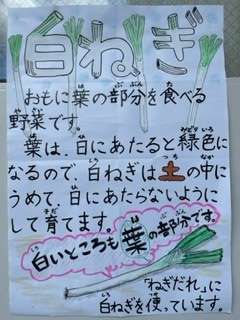 白ねぎ
おもに葉の部分を食べる
野菜です。
葉は、日にあたると緑色に
なるので、白ねぎは土の中に
うめて、日にあたらないように
して育てます。
白いところも葉の部分です。
「ねぎだれ」に
白ねぎを使っています。